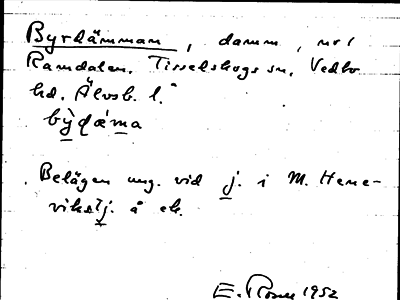 Byrdämman, damm, nr i
Ramdalen. Tisselskogs sn, Vedbo
hd. Älvsb. l.
bỳdæ̀ma
Belägen ung. vid j. i M. Hene-
viks j. å ek.
E. Rosm 1952